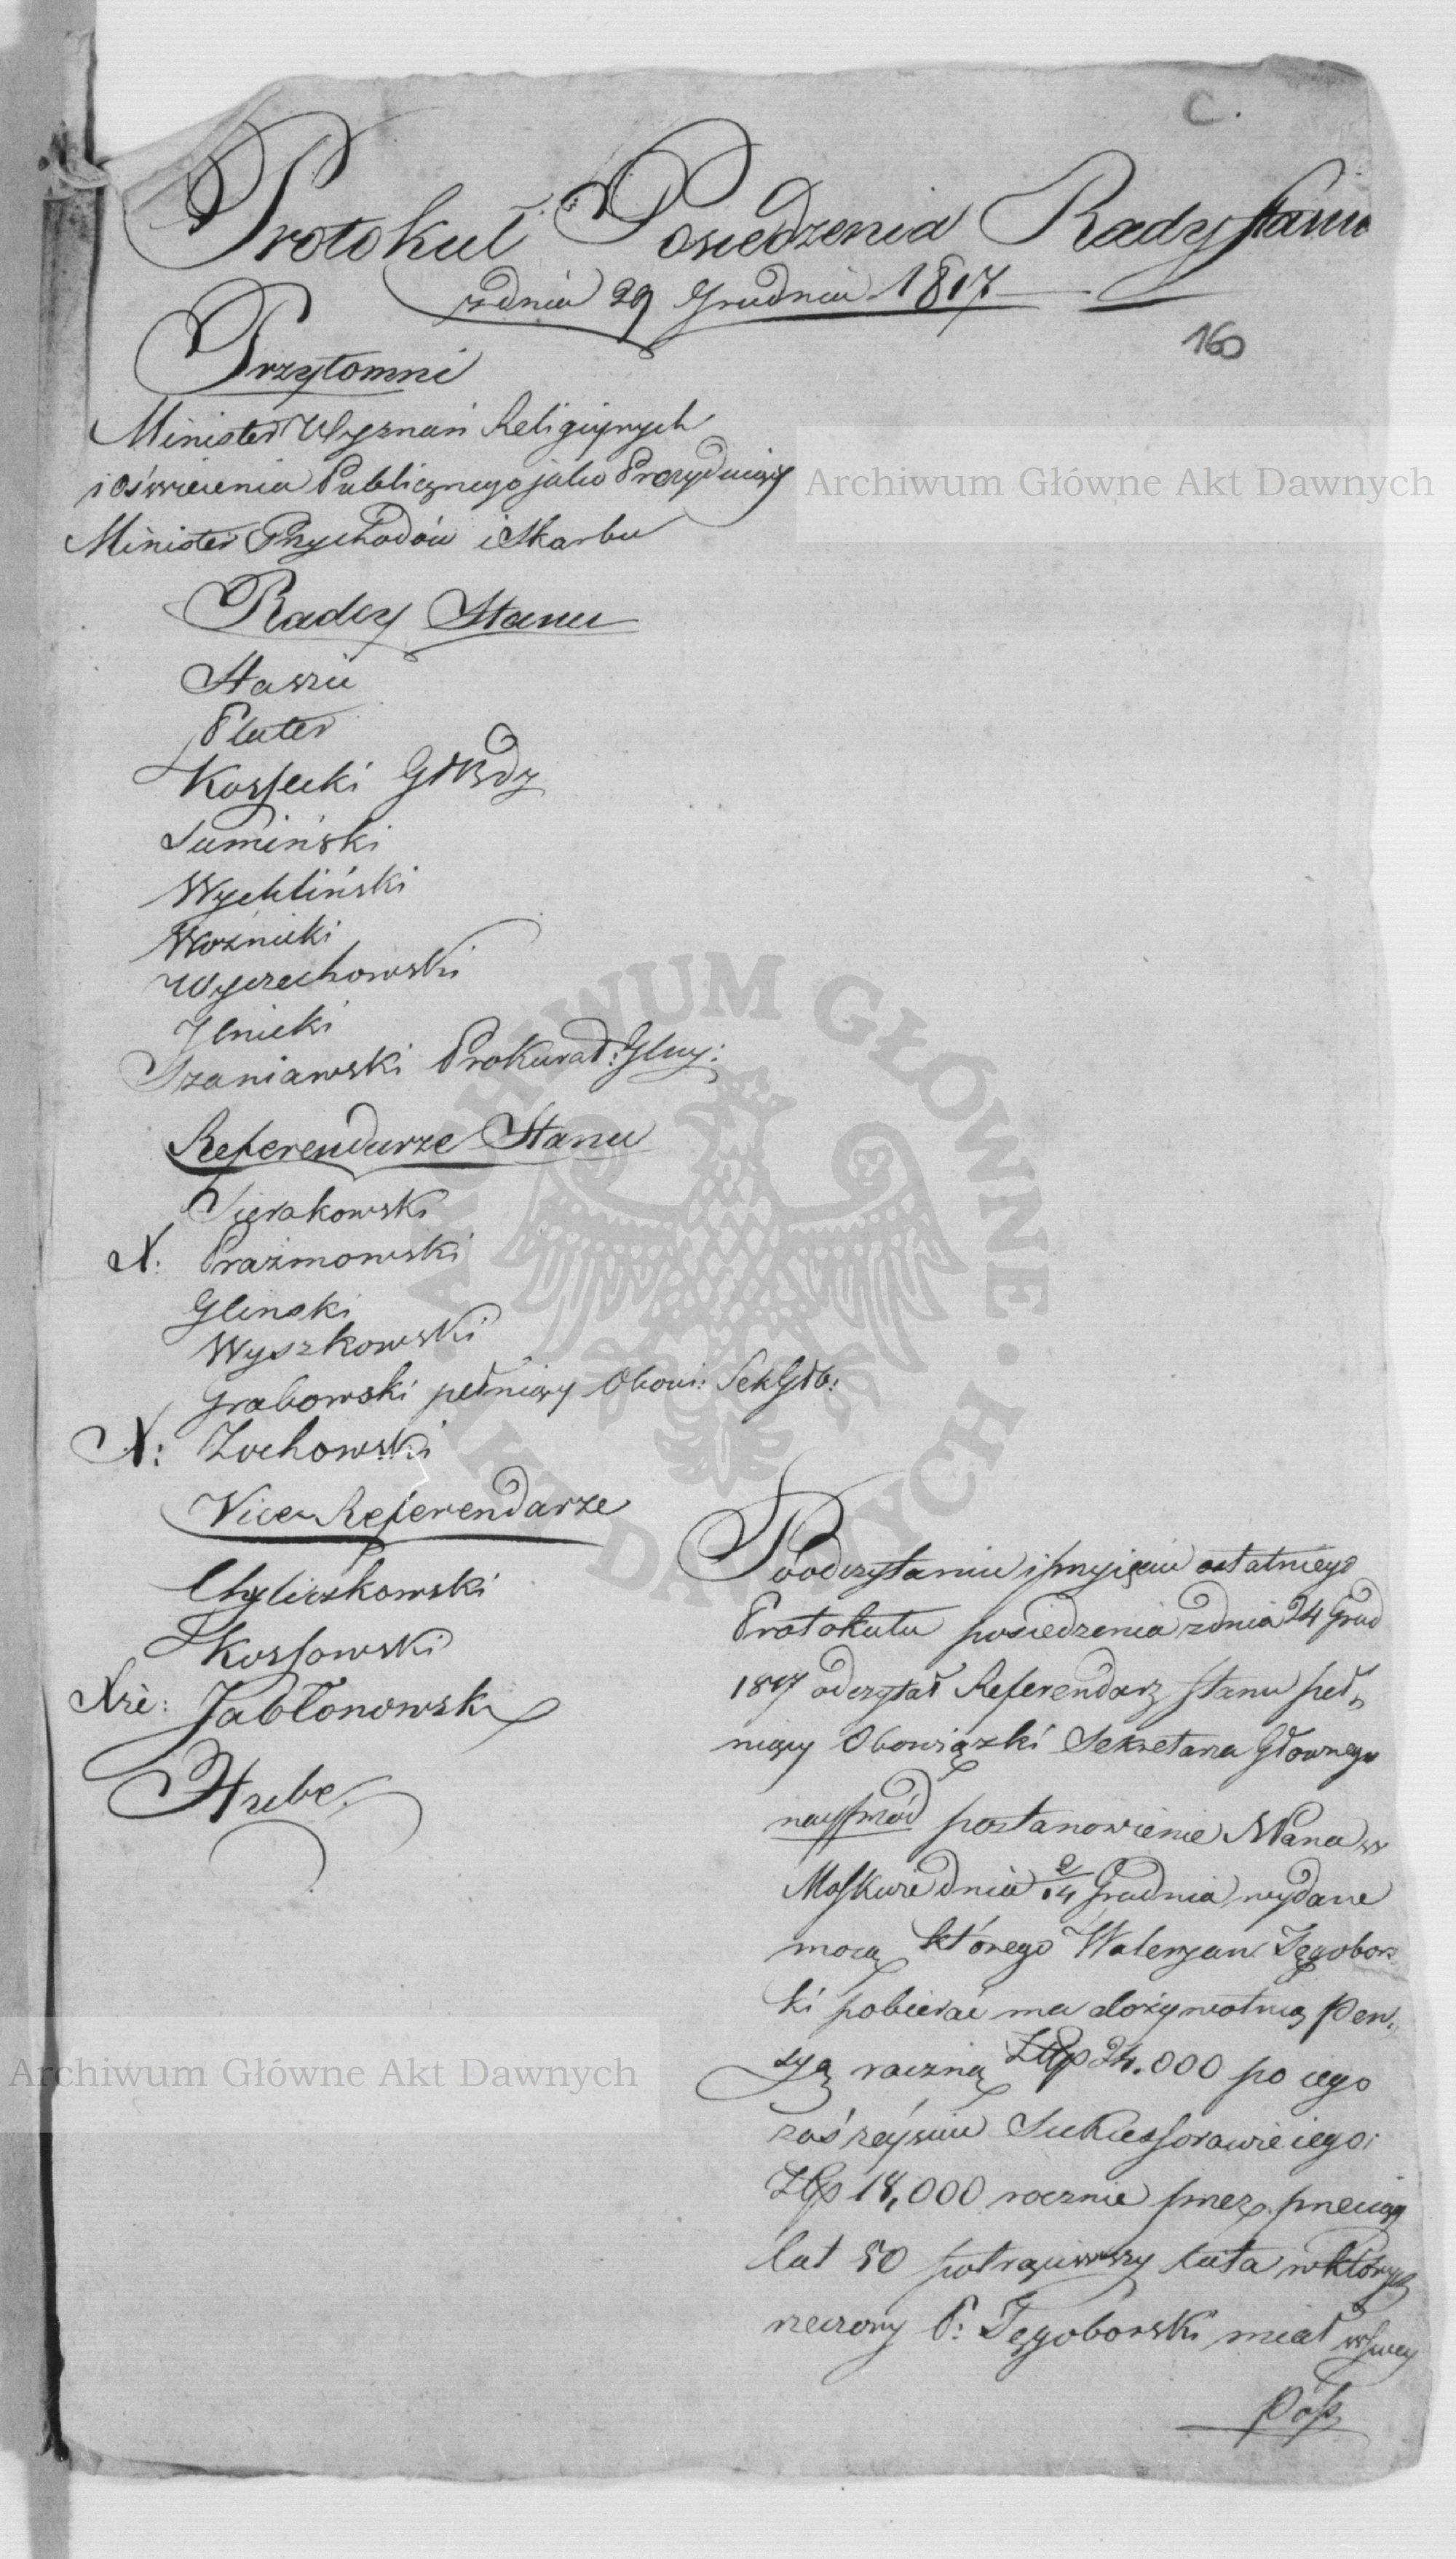 C.
Protokuł Posiedzenia Rady Stanu
z dnia 29 Grudnia 1817
160
Przytomni
Minister Wyznań Religijnych
i Oświecenia Publicznego jako Prezydujący
Minister Przychodów i Skarbu
Radcy Stanu
Staszic
Plater
Kossecki
Sumiński
Wychliński
Woźnicki
Wyczechowski
Jlnicki
Szaniawski Prokurat: Glny:
Referendarze Stanu
Sierakowski
X: Prażmowski
Gliński
Wyszkowski
Grabowski pełniący Obowi: Sek Głó:
X: Zochowski
Vice Referendarze
Chyliczkowski
Kossowski
Xże: Jabłonowski
Hube
Po odczytaniu i przyięciu ostatniego
Protokułu posiedzenia z dnia 24 Grud
1817 odczytał Referendarz Stanu peł,
niący Obowiązki Sekretarza Głównego
nayprzód postanowienie NPana w
Moskwie dnia 2/14 Grudnia wydane
mocą którego Waleryan Tęgobors,
ki pobierać ma dożywotnią Pen,
syą roczną Złp 24.000 po iego
zaś zeyściu Sukcessorowie iego
Złp 18,000 rocznie przez przeciąg
lat 50 potrąciwszy lata w których
rzeczony P: Tęgoborski miał w swey
Poss
Archiwum Główne Akt Dawnych
Archiwum Główne Akt Dawnych
ARCHIWUM GŁÓWNE · AKT DAWNYCH ·